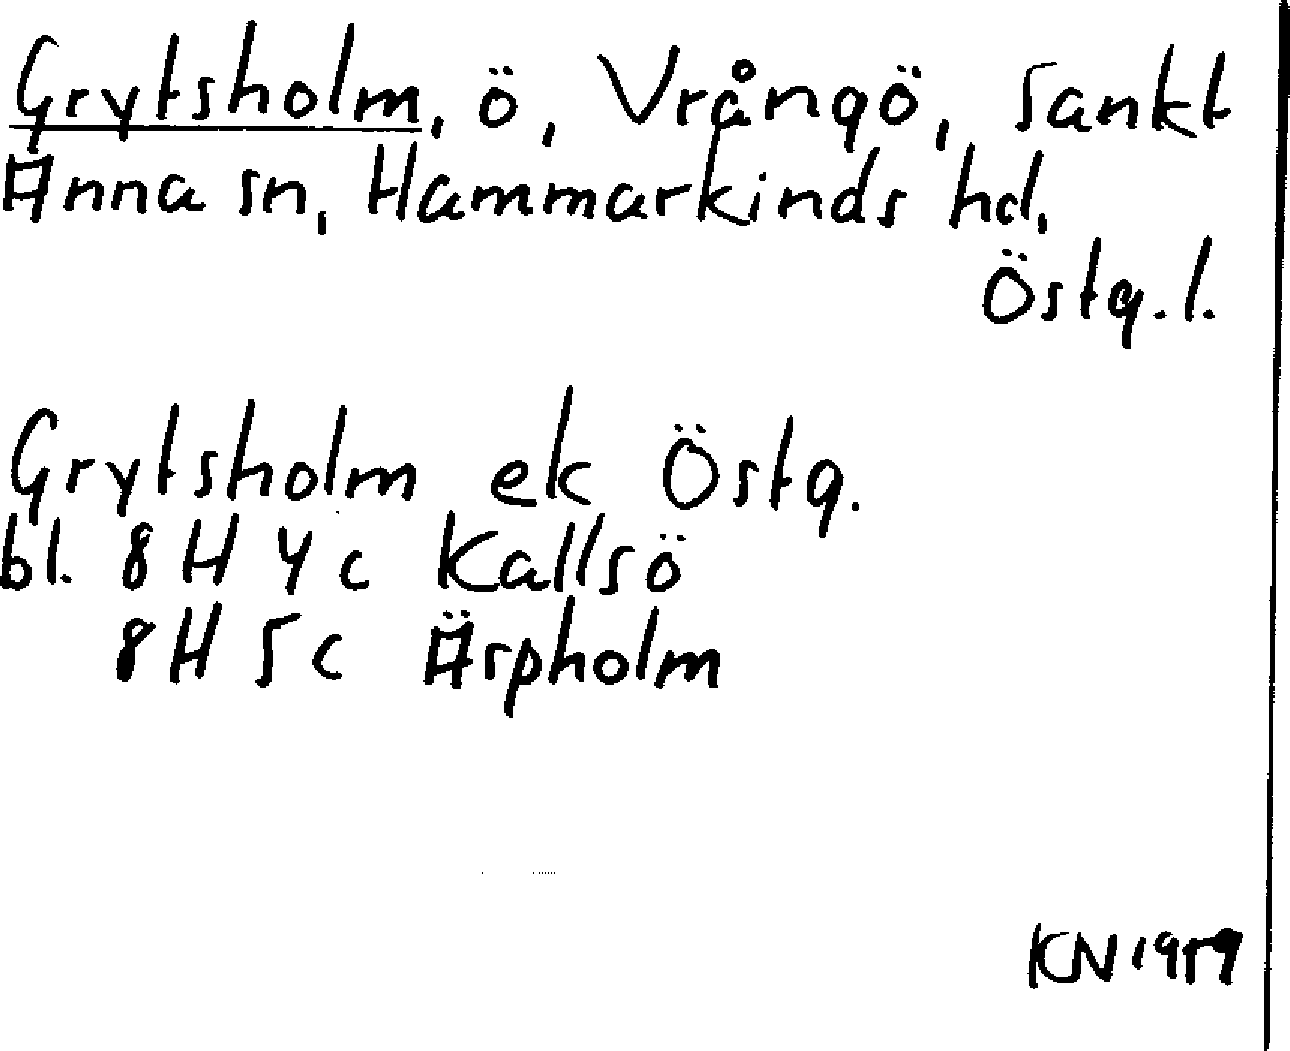 Grytsholm, ö, Vrångö, Sankt
Anna sn, Hammarkinds hd,
Östg. l.
Grytsholm ek Östg.
bl. 8 H 4 c Kallsö
8 H 5 c Ärpholm
KN 1959